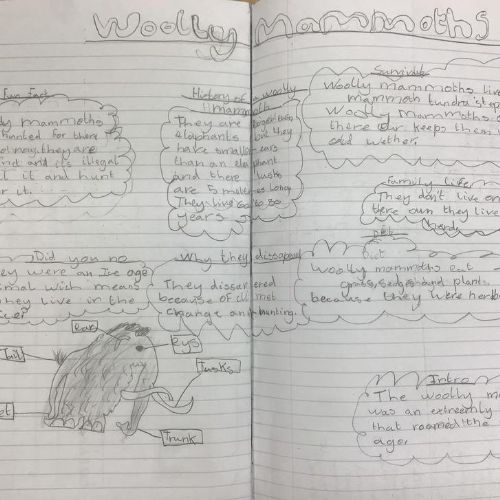 Woolly Mammoths
Fun Fact
mammoths
hunted for there
they are
and its illegal
it and hunt
it.
History of a woolly
mammoth
They are
elephants
have smaller ears
than an elephant
and there tusks
are 5 meters long
They live 60 to 80
years
Survival
Woolly mammoths live
mammoth tundra
Woolly mammoths
there fur keeps them
old wether.
Family life
They don't live on
there own they live
herds
Did you no
they were an Ice age
animal wich means
they live in the
Why they dissapeard
They dissapeered
because of climet
change and hunting.
Diet
Diet
Woolly mammoths eat
grass, sedges and plants
because they were herb
Intro
The woolly m
was an extreemly
that roamed the
age.
Ear
Eye
Tail
Tusks
Trunk